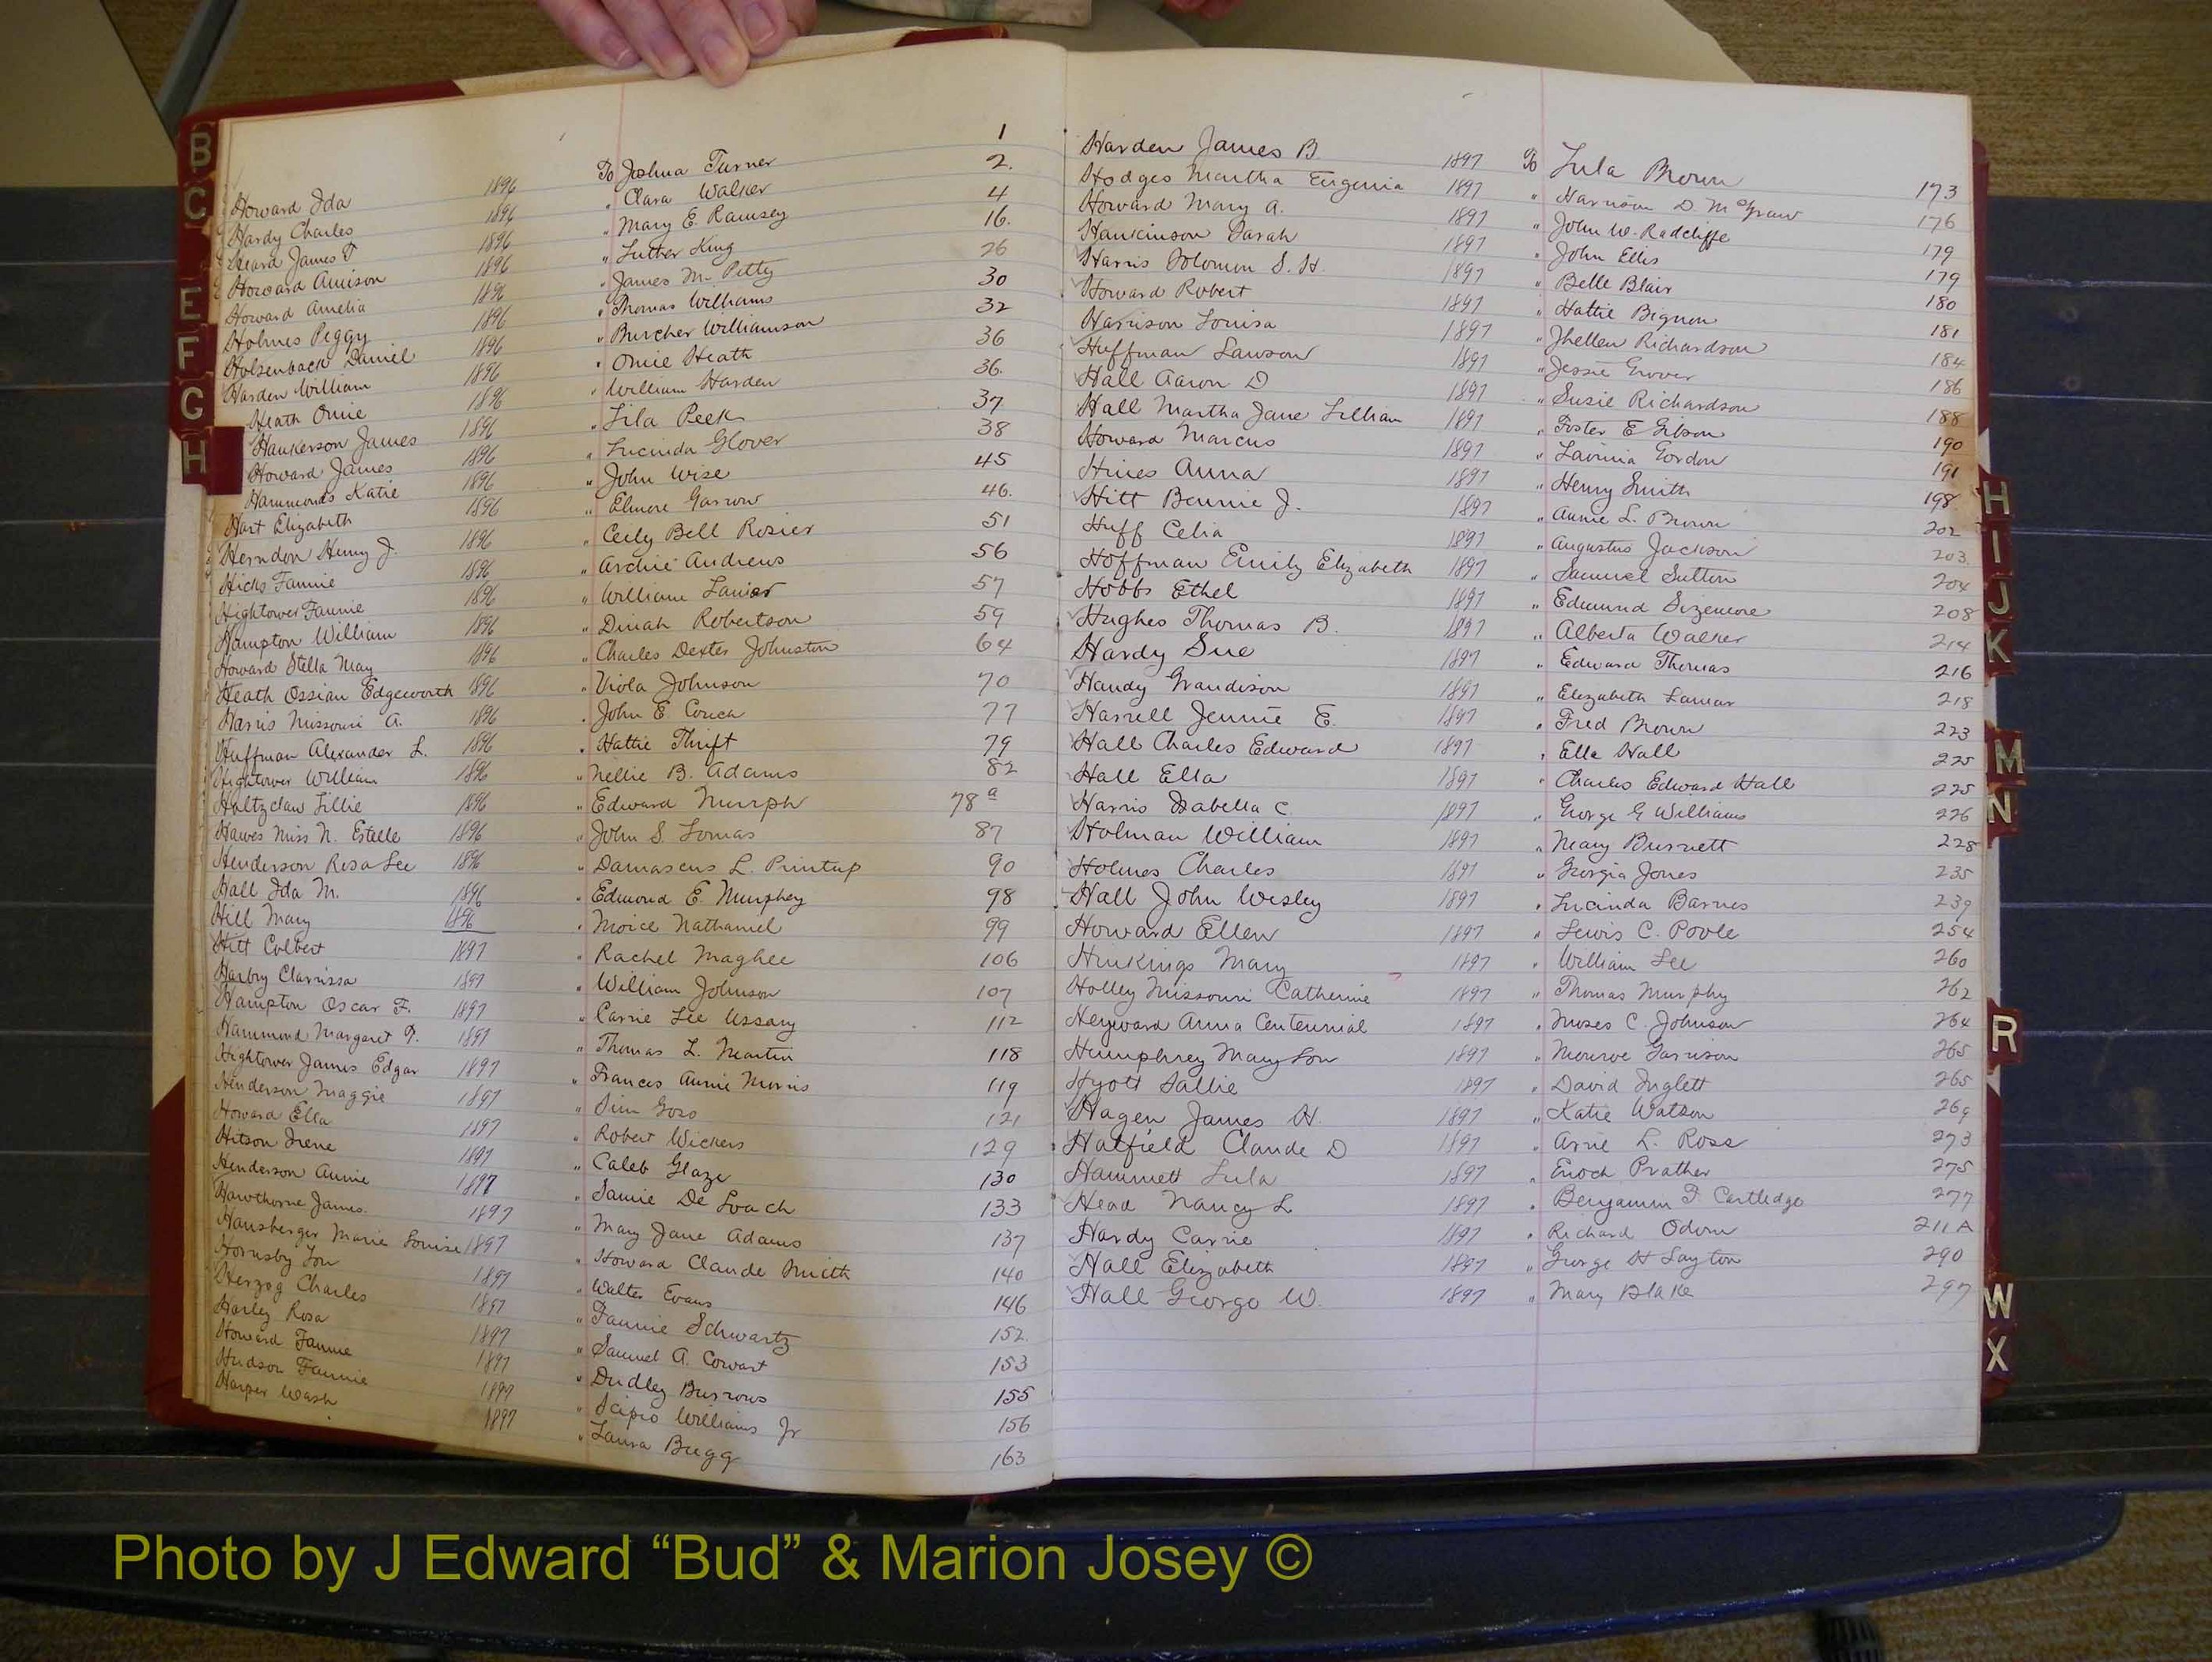 Howard Ida 1896 To Joshua Turner 1
Hardy Charles 1896 " Clara Walker 2.
Heard James T 1896 " Mary E. Ramsey 4
Howard Anison 1896 " Luther King 16.
Howard Amelia 1896 " James M. Petty 26
Holmes Peggy 1896 " Thomas Williams 30
Holsenback Daniel 1896 " Burcher Williamson 32
Harden William 1896 " Omie Heath 36
Heath Omie 1896 " William Harden 36.
Hankerson James 1896 " Lila Peek 37
Howard James 1896 " Lucinda Glover 38
Hammonds Katie 1896 " John Wise 45
Hart Elizabeth 1896 " Elmore Garrow 46.
Herndon Henry J. 1896 " Cecily Bell Rosier 51
Hicks Fannie 1896 " Archie Andrews 56
Hightower Fannie 1896 " William Lanier 57
Hampton William 1896 " Dinah Robertson 59
Howard Stella May 1896 " Charles Dexter Johnston 64
Heath Ossian Edgeworth 1896 " Viola Johnson 70
Harris Missouri A. 1896 " John E Couch 77
Huffman Alexander L. 1896 " Hattie Thrift 79
Hightower William 1896 " Nellie B. Adams 82
Holtzclaw Lillie 1896 " Edward Murph 78 a
Hawes Miss N. Estelle 1896 " John S. Lomas 87
Henderson Rosa Lee 1896 " Damascus L. Printup 90
Hall Ida M. 1896 " Edmund E. Murphey 98
Hill Mary 1896 " Moice Nathaniel 99
Hitt Colbert 1897 " Rachel Maghee 106
Harbry Clarrissa 1897 " William Johnson 107
Hampton Oscar F. 1897 " Carrie Lee Ussary 112
Hammond Margaret T. 1897 " Thomas L. Martin 118
Hightower James Edgar 1897 " Frances Annie Morris 119
Henderson Maggie 1897 " Jim Goss 121
Howard Ella 1897 " Robert Wickers 129
Hitson Irene 1897 " Caleb Glaze 130
Henderson Annie 1897 " Samie De Loach 133
Hawthorne James. 1897 " Mary Jane Adams 137
Hansberger Marie Louise 1897 " Howard Claude Smith 140
Hornsby Lou 1897 " Walter Evans 146
Herzog Charles 1897 " Fannie Schwartz 152.
Harley Rosa 1897 " Samuel A. Cowart 153
Howard Fannie 1897 " Dudley Burrows 155
Hudson Fannie 1897 " Scipio Williams Jr 156
Harper Wash 1897 " Laura Bugg 163
Harden James B. 1897 To Lula Brown 173
Hodges Martha Eugenia 1897 " Harrison D. McGraw 176
Howard Mary A. 1897 " John W. Radcliffe 179
Hankinson Sarah 1897 " John Ellis 179
Harris Solomon S. H. 1897 " Belle Blair 180
Howard Robert 1897 " Hattie Bignon 181
Harrison Louisa 1897 " Jhellen Richardson 184
Huffman Lawson 1897 " Jessie Grover 186
Hall Aaron D 1897 " Susie Richardson 188
Hall Martha Jane Lillian 1897 " Foster E Gibson 190
Howard Marcus 1897 " Lavinia Gordon 191
Hines Anna 1897 " Henry Smith 198
Hitt Bennie J. 1897 " Annie L. Brown 202
Huff Celia 1897 " Augustus Jackson 203
Hoffman Emily Elizabeth 1897 " Samuel Sutton 204
Hobbs Ethel 1897 " Edmund Sizemore 208
Hughes Thomas B. 1897 " Alberta Walker 214
Hardy Sue 1897 " Edward Thomas 216
Handy Grandison 1897 " Elizabeth Lamar 218
Harrell Jennie E. 1897 " Fred Brown 223
Hall Charles Edward 1897 " Ella Hall 225
Hall Ella 1897 " Charles Edward Hall 225
Harris Isabella C 1897 " George G Williams 226
Holman William 1897 " Mary Burnett 228
Holmes Charles 1897 " Georgia Jones 235
Hall John Wesley 1897 " Lucinda Barnes 239
Howard Ellen 1897 " Lewis C. Poole 254
Hinkings Mary 1897 " William Lee 260
Holley Missouri Catherine 1897 " Thomas Murphy 262
Heyward Anna Centennial 1897 " Moses C. Johnson 264
Humphrey Mary Lou 1897 " Monroe Garrison 265
Hyott Sallie 1897 " David Inglett 265
Hagen James H. 1897 " Katie Watson 269
Hatfield Claude D 1897 " Arne L. Ross 273
Hammett Lula 1897 " Enoch Prather 275
Head Nancy L 1897 " Benjamin F. Cartledge 277
Hardy Carrie 1897 " Richard Odom 211 A
Hall Elizabeth 1897 " George H Layton 290
Hall George W. 1897 " Mary Blake 297
B
C
E
F
G
H
H
I
J
K
M
N
R
W
X
Photo by J Edward “Bud” & Marion Josey ©